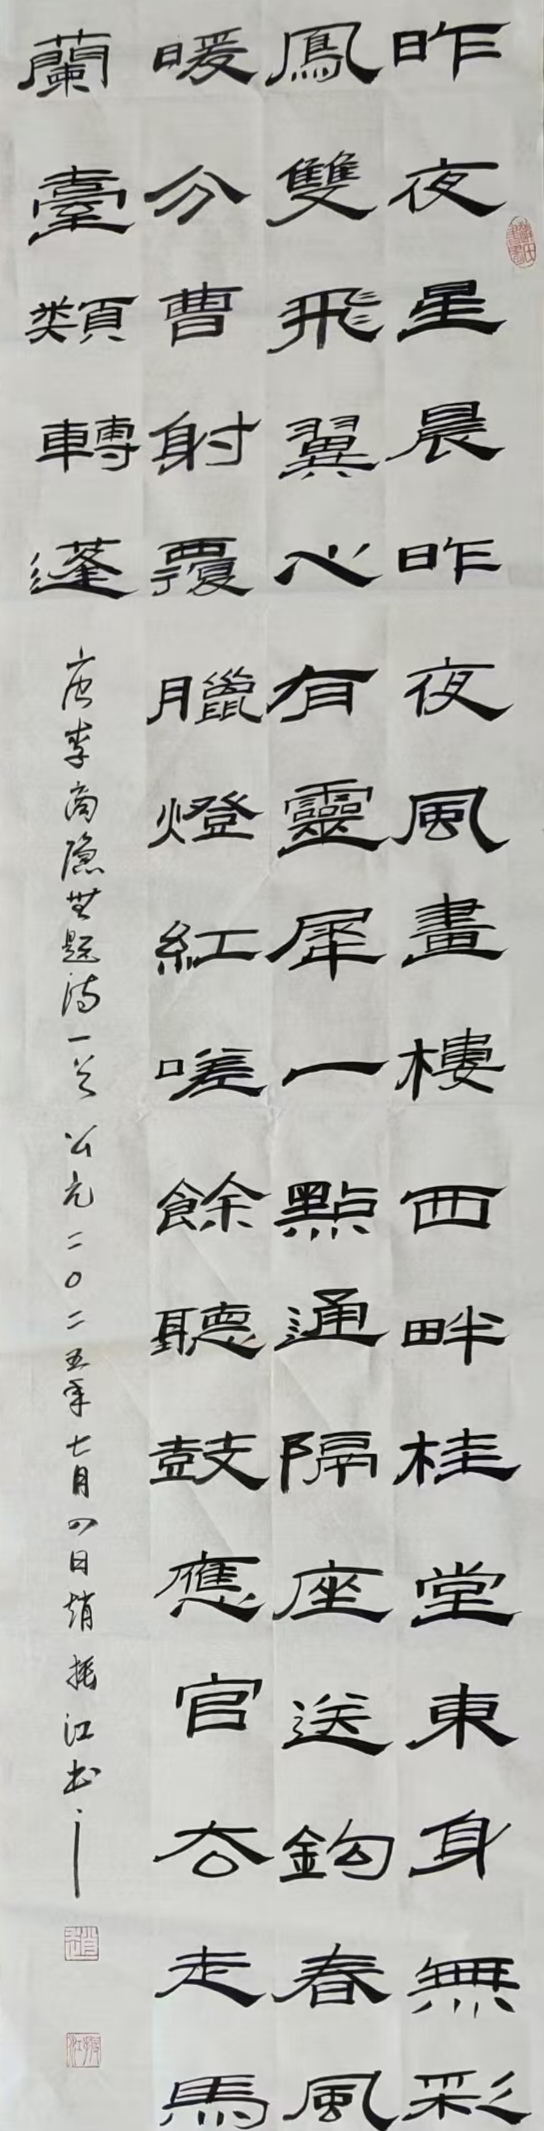 昨夜星晨昨夜風畫樓西畔桂堂東身無彩
鳳雙飛翼心有靈犀一點通隔座送鈎春風
暖分曹射覆臘燈紅嗟餘聽鼓應官厺走馬
蘭臺類轉蓬
唐李商隐無题诗一首 公元二〇二五年七月四日趙振江书